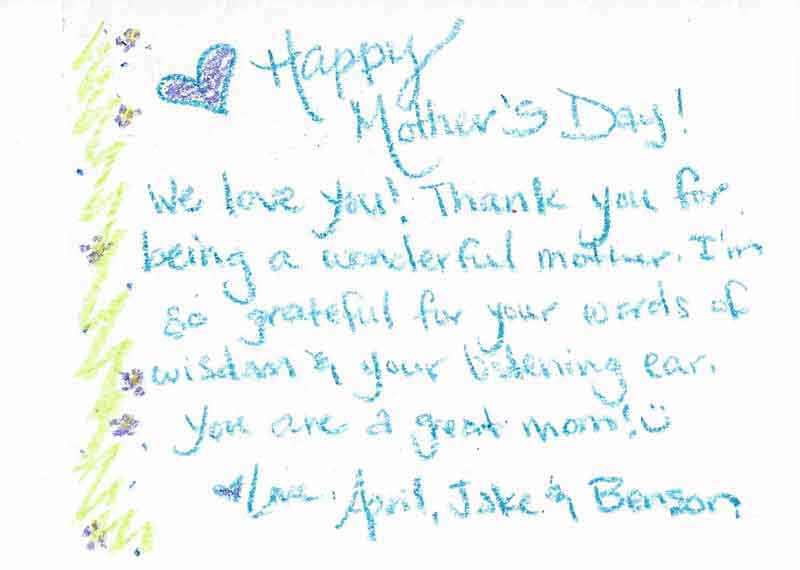 Happy
Mother's Day!
We love you! Thank you for
being a wonderful mother. I'm
so grateful for your words of
wisdom & your listening ear.
You are a great mom!
Love, April, Jake & Benson